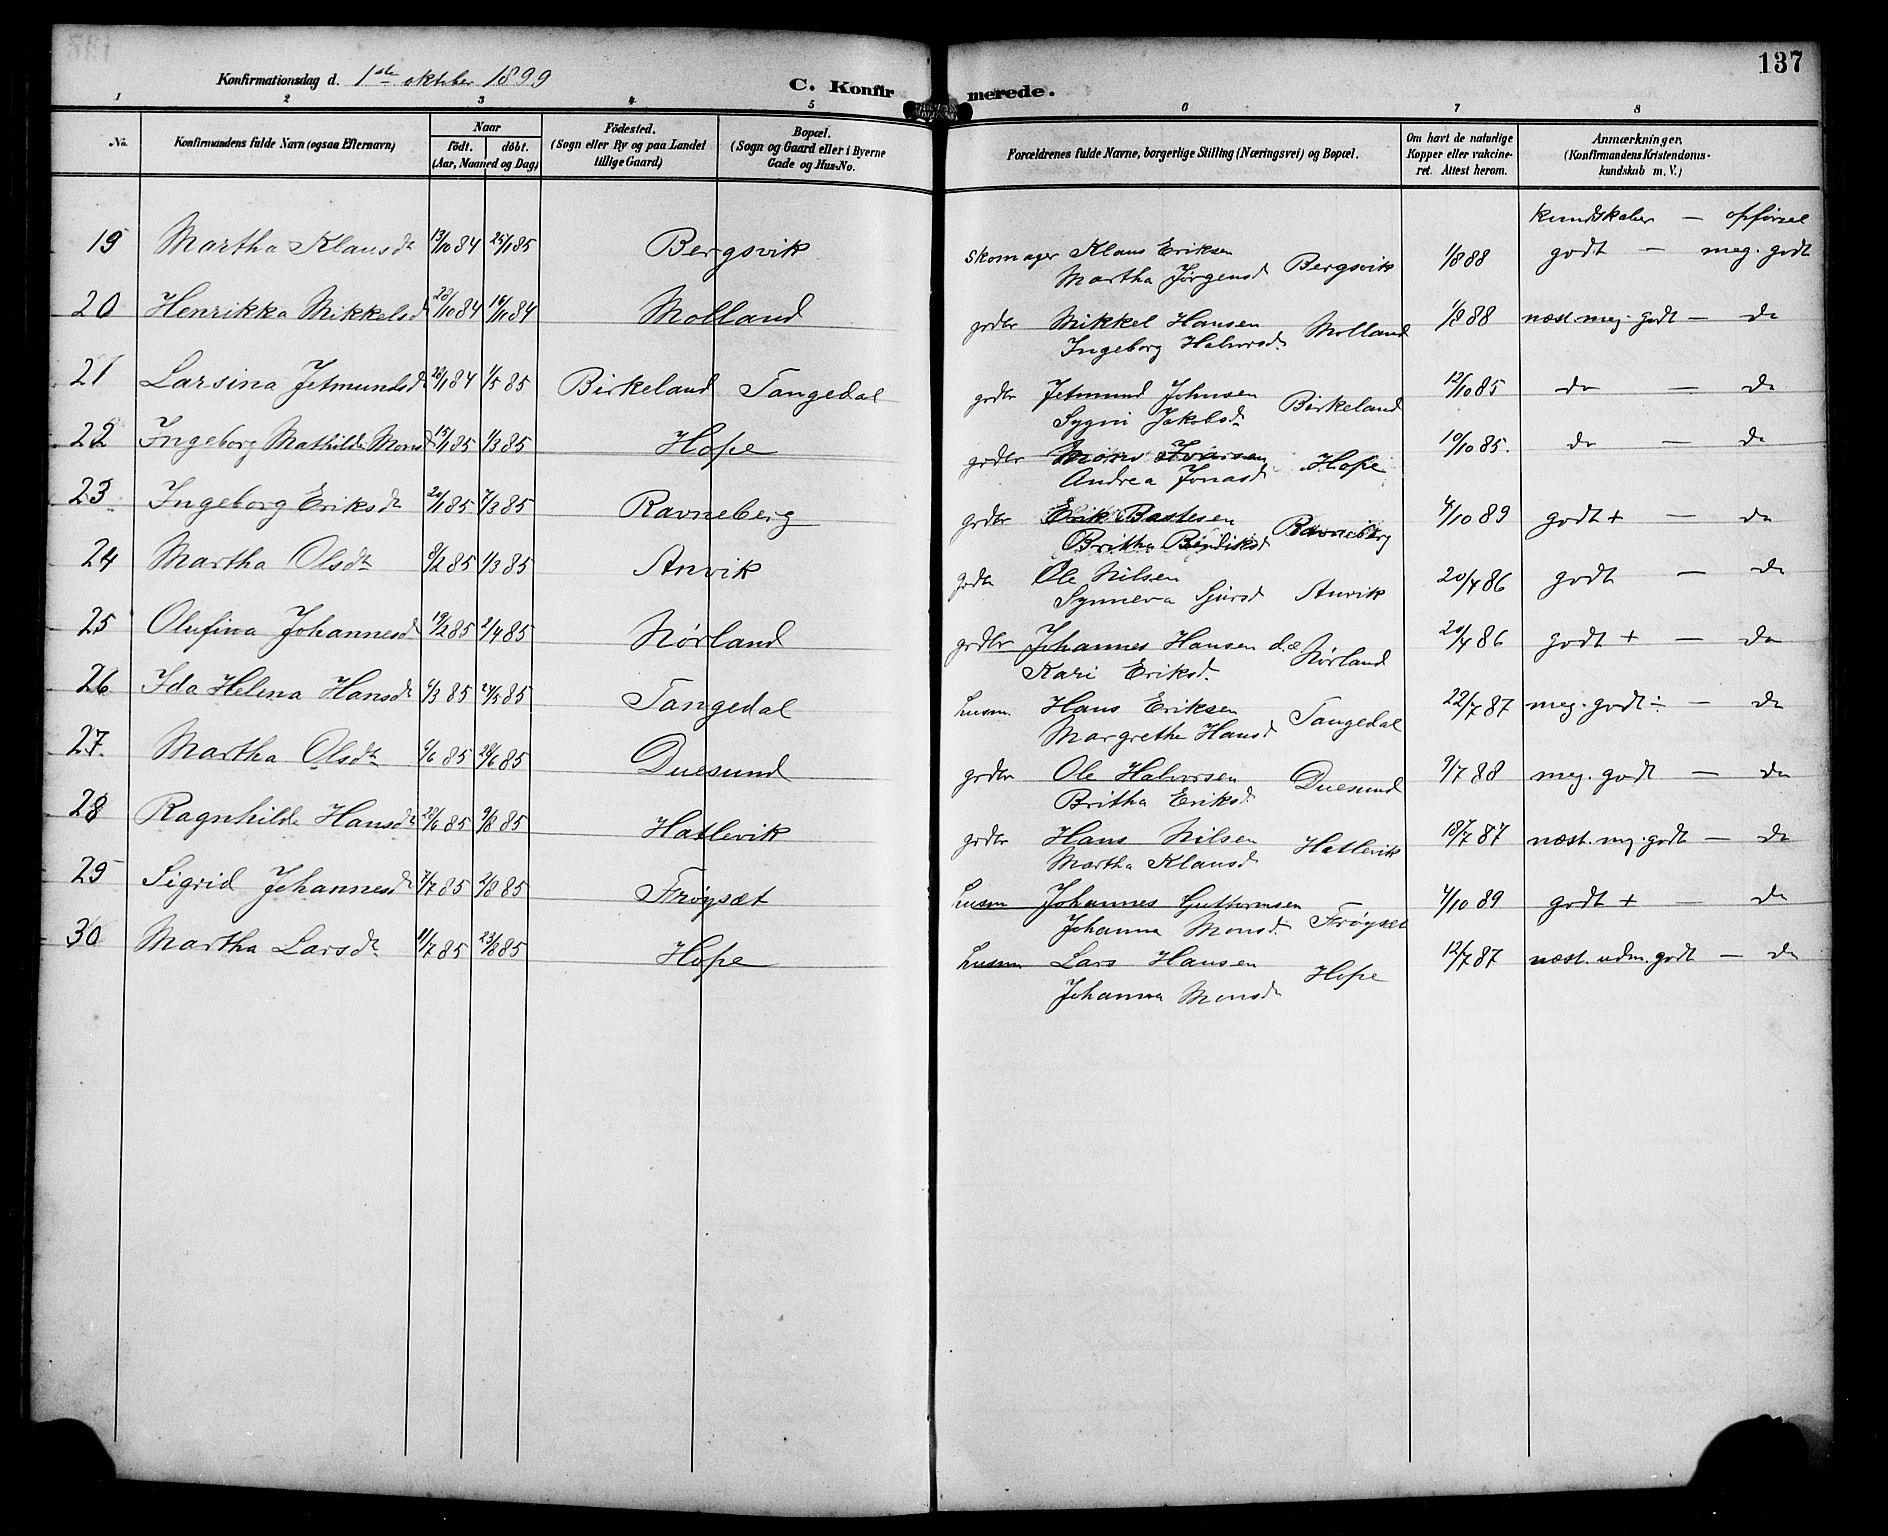 137
Konfirmationsdag d. 1ste oktober 1899
C. Konfirmerede.
1 2 3 4 5 6 7 8
No. Konfirmandens fulde Navn (ogsaa Efternavn) Naar födt. döbt. (Aar, Maaned og Dag) Födested. (Sogn eller By og paa Landet tillige Gaard) Bopæl. (Sogn og Gaard eller i Byerne Gade og Hus-No. Forældrenes fulde Navne, borgerlige Stilling (Næringsvei) og Bopæl. Om havt de naturlige Kopper eller vakcineret. Attest herom. Anmærkninger, (Konfirmandens Kristendomskundskab m. V.)
kundskaber — opførsel
19 Martha Klausdr 13/10 84 25/1 85 Bergsvik Skomager Klaus Eriksen Bergsvik 1/8 88 godt — meg. godt
Martha Jørgensd
20 Henrikka Mikkelsd 28/10 84 16/11 84 Molland grdbr Mikkel Hansen Molland 1/8 88 næst meg. godt — do
Ingeborg Halvorsd.
21 Larsina Jetmundsd 1/5 85 Birkeland Tangedal grdbr Jetmund Johnsen Birkeland 12/10 85 do — do
Sygni Jakobsd
22 Ingeborg Mathilde Monsd 15/1 85 1/3 85 Hope grdbr Mons Iversen Hope 10/10 85. do — do
Andrea Jonasd
23. Ingeborg Eriksdr 20/1 85 7/3 85 Ravneberg grdbr Erik Bastesen Ravneberg 4/10 89 godt + — do
Britha Bendiksd
24 Martha Olsdr 1/3 85 Anvik grdbr Ole Nilsen Anvik 20/4 86 godt — do
Synneva Sjursd
25 Olufina Johannesd 19/2 85 2/4 85 Nørland grdbr Johannes Hansen d.æ Nørland 20/4 86 godt + — do
Kari Eriksd.
26 Ida Helena Hansdr 6/3 85 27/5 85 Tangedal husm. Hans Eriksen Tangedal 22/7 87 meg. godt ÷ — do
Margrethe Hansd
27. Martha Olsdr 6/6 85 28/6 85 Duesund grdbr Ole Halvorsen Duesund 9/7 88 meg. godt — do
Britha Eriksd.
28 Ragnhilda Hansdr 22/6 85 9/8 85 Hatlevik grdbr Hans Nilsen Hatlevik 18/7 87 næst. mg. godt — do
Martha Klausd
29 Sigrid Johannesd 7/7 85 2/8 85 Frøysæt husm Johannes Guttormsen Frøyset 4/10 89 godt + — do
Johanna Monsd.
30 Martha Larsdr 11/7 85 23/8 85 Hope husm Lars Hansen Hope 12/7 87 næst. udm. godt — do
Johanna Monsd